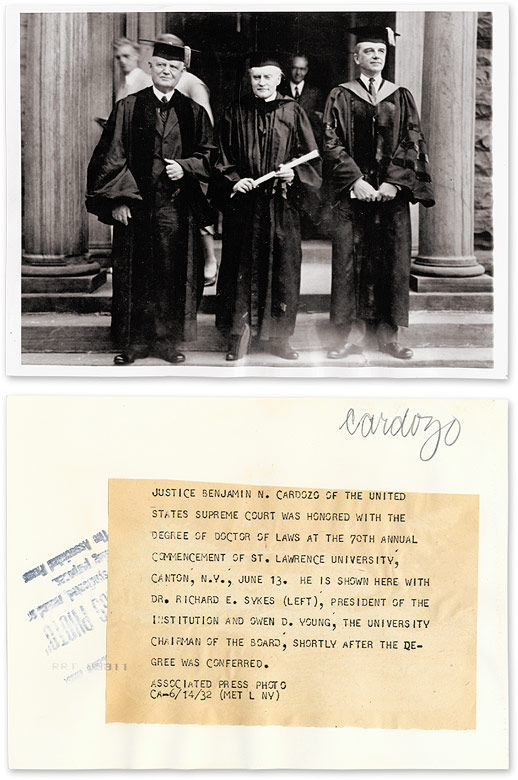 cardozo
JUSTICE BENJAMIN N. CARDOZO OF THE UNITED
STATES SUPREME COURT WAS HONORED WITH THE
DEGREE OF DOCTOR OF LAWS AT THE 70TH ANNUAL
COMMENCEMENT OF ST. LAWRENCE UNIVERSITY,
CANTON, N.Y., JUNE 13. HE IS SHOWN HERE WITH
DR. RICHARD E. SYKES (LEFT), PRESIDENT OF THE
INSTITUTION AND OWEN D. YOUNG, THE UNIVERSITY
CHAIRMAN OF THE BOARD, SHORTLY AFTER THE DE-
GREE WAS CONFERRED.
ASSOCIATED PRESS PHOTO
CA-6/14/32 (MET L NV)
The Associated Press
PHOTO